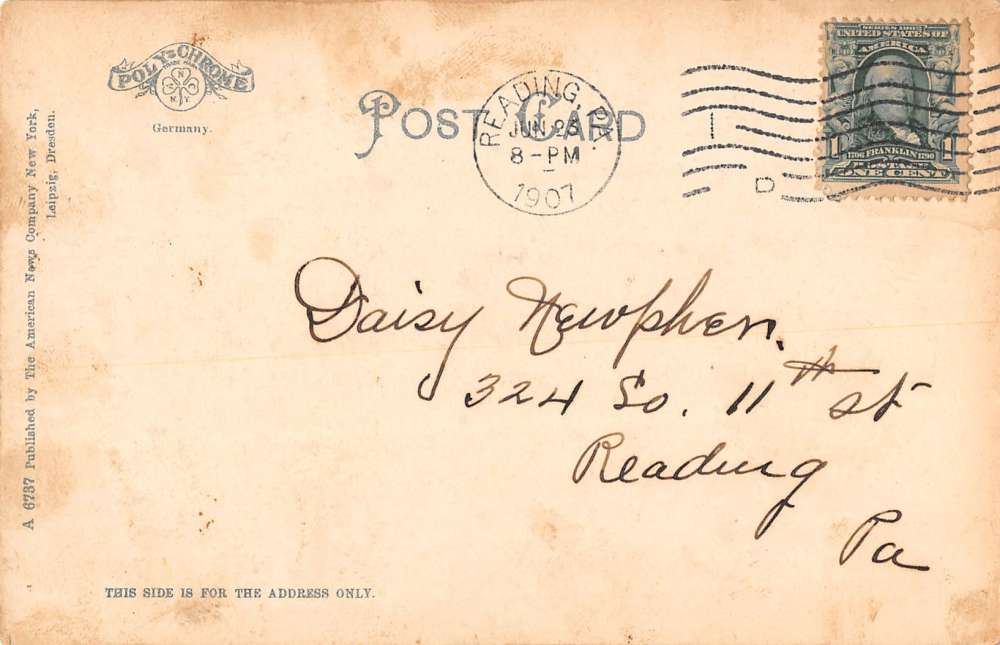 POLY-CHROME
TRADE MARK
N
N.Y.
Germany.
POST CARD
READING, PA.
JUN 28
8-PM
1907
D
SERIES 1902
UNITED STATES OF
AMERICA
1706 FRANKLIN 1790
ONE CENT
A 6737 Published by The American News Company New York,
Leipzig, Dresden.
Daisy Newphen.
324 So. 11th st
Reading
Pa
THIS SIDE IS FOR THE ADDRESS ONLY.